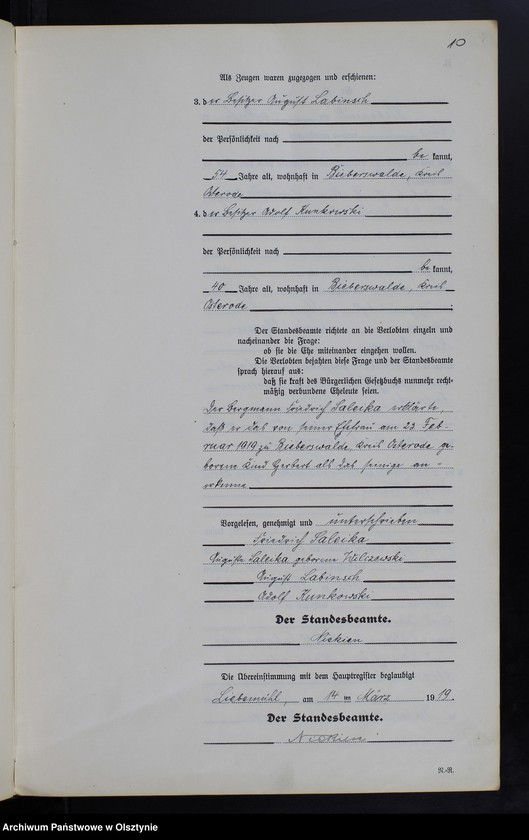 10
Als Zeugen waren zugezogen und erschienen:
3. der Besitzer August Labinsch
der Persönlichkeit nach
bekannt,
54 Jahre alt, wohnhaft in Bieberswalde, Kreis
Osterode
4. der Besitzer Adolf Kunkowski
der Persönlichkeit nach
bekannt,
40 Jahre alt, wohnhaft in Bieberswalde, Kreis
Osterode.
Der Standesbeamte richtete an die Verlobten einzeln und
nacheinander die Frage:
ob sie die Ehe miteinander eingehen wollen.
Die Verlobten bejahten diese Frage und der Standesbeamte
sprach hierauf aus:
daß sie kraft des Bürgerlichen Gesetzbuchs nunmehr recht-
mäßig verbundene Eheleute seien.
Der Bergmann Friedrich Saleika erklärte,
daß er das von seiner Ehefrau am 23. Feb-
ruar 1919 zu Bieberswalde, Kreis Osterode ge-
borene Kind Herbert als das seinige an-
erkenne
Vorgelesen, genehmigt und unterschrieben
Friedrich Saleika
Auguste Saleika geborene Wilczewski
August Labinsch
Adolf Kunkowski
Der Standesbeamte.
Die Übereinstimmung mit dem Hauptregister beglaubigt
Liebemühl, am 14 ten März 1919.
Der Standesbeamte.
R.-R.
Archiwum Państwowe w Olsztynie